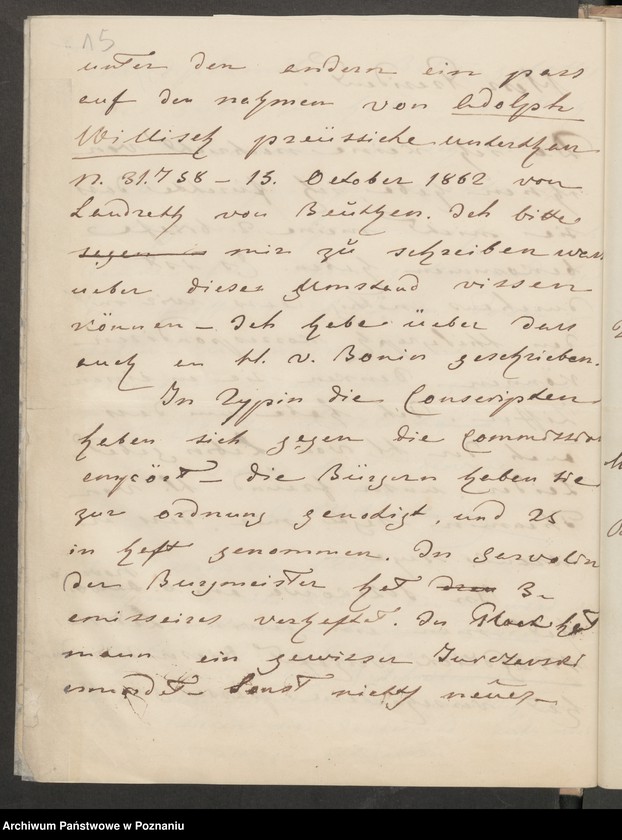 15
unter den andern ein pass
auf den nahmen von Adolph
Willisch preüssiche unterthan
N. 31.758 – 15. October 1862 von
Landreth von Beüthen. Ich bitte
mir zü schreiben was
ueber dieses Umstand wissen
können – Ich habe üeber dass
auch en H. v. Bonin geschrieben.
In Rypin die Conscripten
heben sich gegen die Commission
empört – die Bürgern heben sie
zur ordnung genodigt, und 25
in heft genommen. In Garvolin
der Burgmeister het 3
emissaires verheftet. In Plock het
mann ein gewisser Jurczewski
ermordet – Sonst nichts neües –
Archiwum Państwowe w Poznaniu